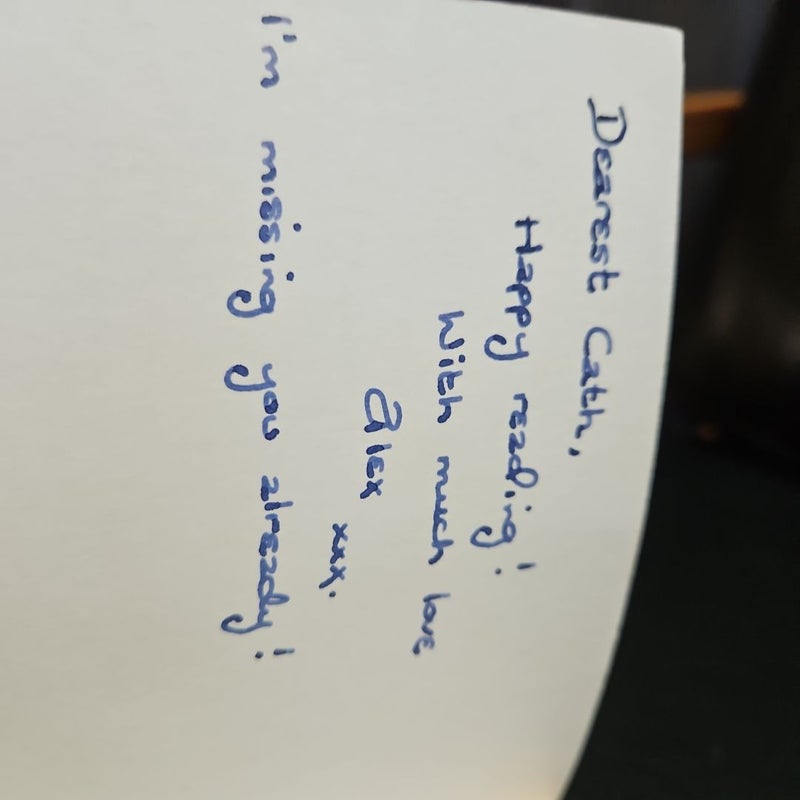 Dearest Cath,
Happy reading!
With much love
Alex
xxx.
I'm missing you already!